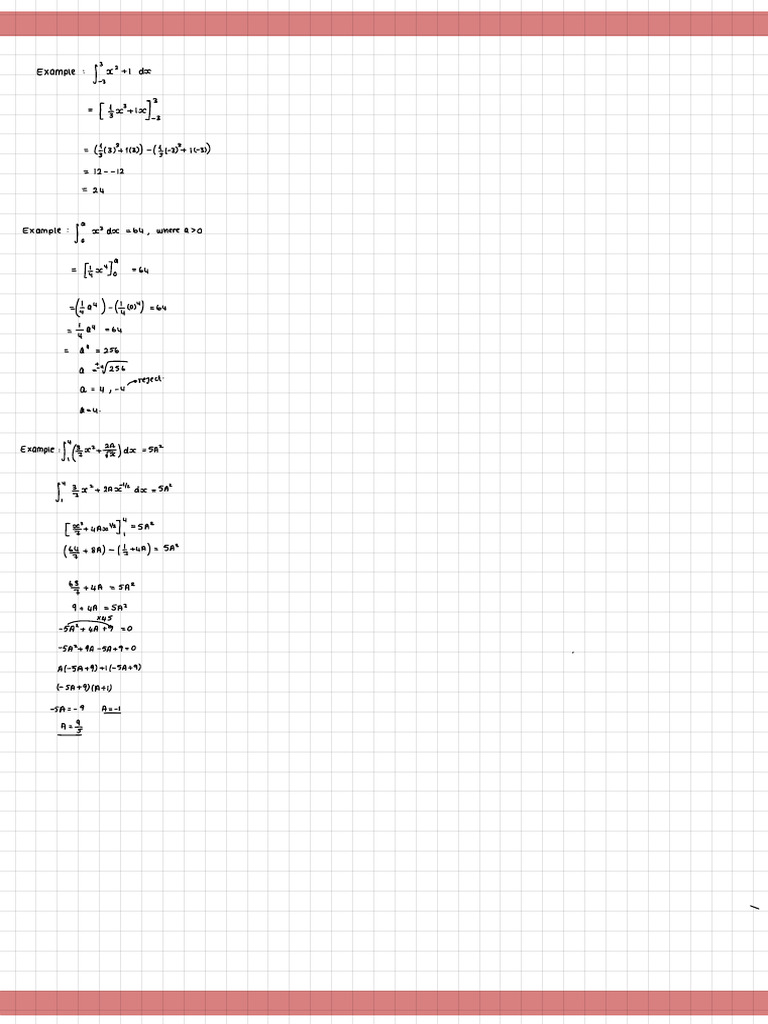 Example : ∫₋₃³ x² + 1 dx
= [ 1/3 x³ + 1x ]₋₃³
= (1/3 (3)³ + 1(3)) - (1/3 (-3)³ + 1(-3))
= 12 - -12
= 24
Example : ∫₀ᵃ x³ dx = 64 , where a > 0
= [ 1/4 x⁴ ]₀ᵃ = 64
= (1/4 a⁴) - (1/4 (0)⁴) = 64
= 1/4 a⁴ = 64
= a⁴ = 256
a = ± ⁴√256
a = 4 , -4 → reject.
a = 4.
Example : ∫₁⁴ (3/7 x² + 2A/√x) dx = 5A²
∫₁⁴ 3/7 x² + 2A x^(-1/2) dx = 5A²
[ x³/7 + 4Ax^(1/2) ]₁⁴ = 5A²
(64/7 + 8A) - (1/7 + 4A) = 5A²
63/7 + 4A = 5A²
9 + 4A = 5A²
×45
-5A² + 4A + 9 = 0
-5A² + 9A - 5A + 9 = 0
A(-5A + 9) + 1(-5A + 9)
(-5A + 9)(A + 1)
-5A = -9 A = -1
A = 9/5